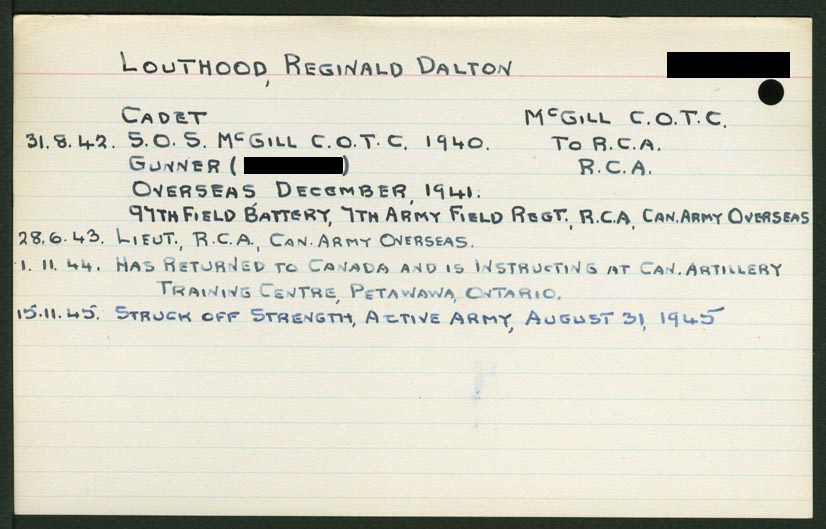 LOUTHOOD, REGINALD DALTON
CADET McGILL C.O.T.C.
31.8.42. S.O.S. McGILL C.O.T.C. 1940. TO R.C.A.
GUNNER ( ) R.C.A.
OVERSEAS DECEMBER, 1941.
97TH FIELD BATTERY, 7TH ARMY FIELD REGT., R.C.A, CAN. ARMY OVERSEAS
28.6.43. LIEUT., R.C.A., CAN. ARMY OVERSEAS.
1. 11. 44. HAS RETURNED TO CANADA AND IS INSTRUCTING AT CAN. ARTILLERY
TRAINING CENTRE, PETAWAWA, ONTARIO.
15.11.45. STRUCK OFF STRENGTH, ACTIVE ARMY, AUGUST 31, 1945